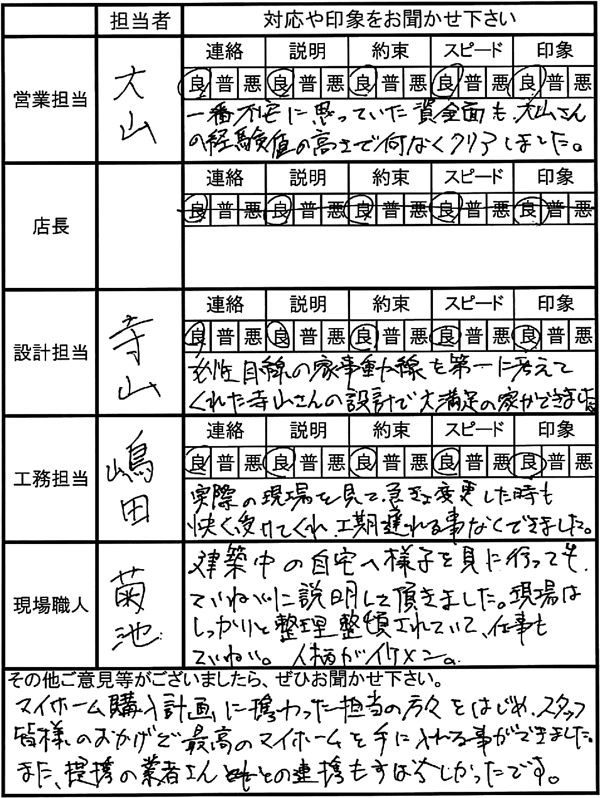 担当者 対応や印象をお聞かせ下さい
営業担当 大山
連絡 説明 約束 スピード 印象
良 普 悪 良 普 悪 良 普 悪 良 普 悪 良 普 悪
一番不安に思っていた資金面も、大山さん
の経験値の高さで何なくクリアしました。
店長
連絡 説明 約束 スピード 印象
良 普 悪 良 普 悪 良 普 悪 良 普 悪 良 普 悪
設計担当 寺山
連絡 説明 約束 スピード 印象
良 普 悪 良 普 悪 良 普 悪 良 普 悪 良 普 悪
女性目線の家事動線を第一に考えて
くれた寺山さんの設計で大満足の家ができました
工務担当 嶋田
連絡 説明 約束 スピード 印象
良 普 悪 良 普 悪 良 普 悪 良 普 悪 良 普 悪
実際の現場を見て、急な変更した時も
快く受けてくれ、工期遅れる事なくできました。
現場職人 菊池
建築中の自宅へ様子を見に行っても、
ていねいに説明して頂きました。現場は
しっかりと整理整頓されていて、仕事も
ていねい。人柄がイケメン。
その他ご意見等がございましたら、ぜひお聞かせ下さい。
マイホーム購入計画に携わった担当の方々をはじめ、スタッフ
皆様のおかげで最高のマイホームを手に入れる事ができました。
また、提携の業者さん との連携もすばらしかったです。